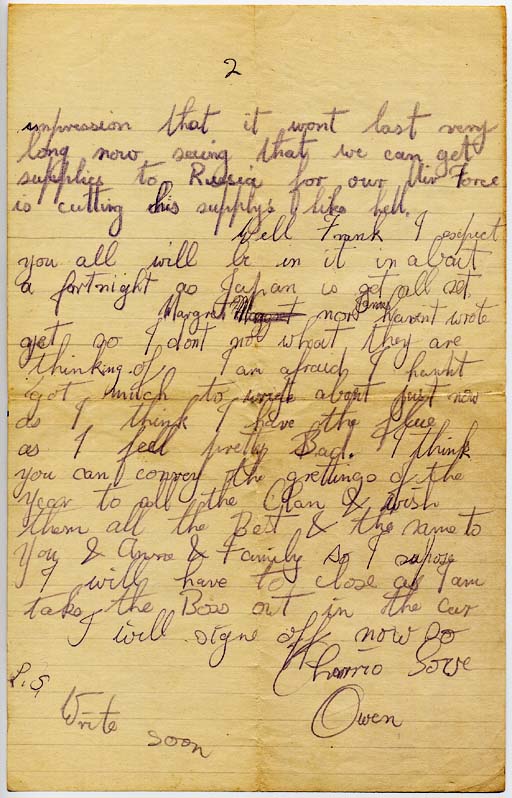 2
impression that it wont last very
long now seeing that we can get
supplies to Russia for our Air Force
is cutting his supplys like hell.
Well Frank I expect
you all will be in it in about
a fortnight as Japan is get all set.
Margret nor Anny havent wrote
yet so I dont no what they are
thinking of I am afraid I havnt
got much to wrote about just now
as I think I have the flue
as I feel pretty Bad. I think
you can convey the grettings of the
year to all the Clan & wish
them all the Best & the same to
You & Anne & Family so I supose
I will have to close as I am
take the Boss out in the car
I will signe off now so
Charrio Love
Owen
P.S.
Write
soon